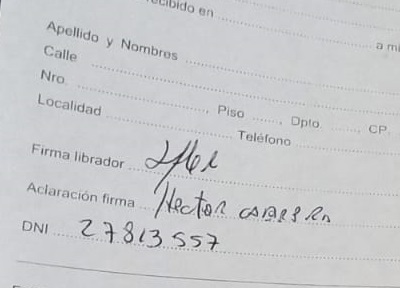 ecibido en
a mi
Apellido y Nombres
Calle
Nro. , Piso , Dpto. , CP.
Localidad Teléfono
Firma librador
Aclaración firma Hector
DNI 27813557